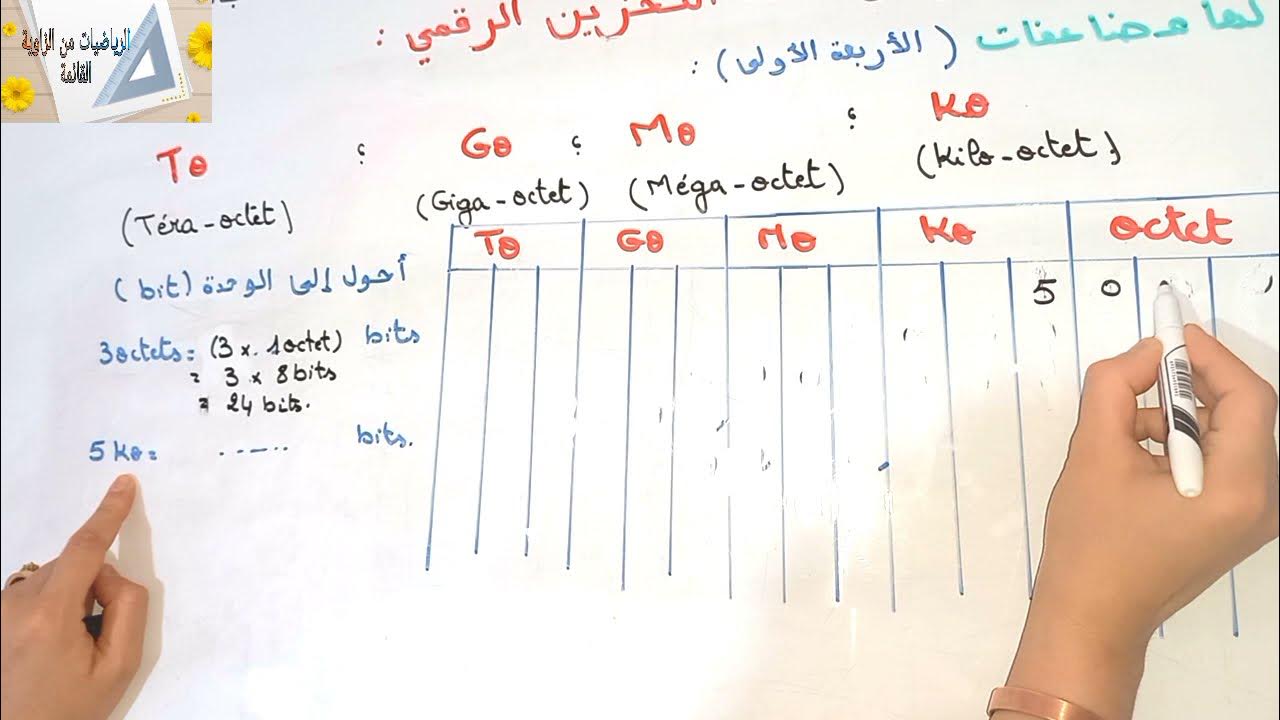 الرياضيات من الزاوية
القائمة
التخزين الرقمي :
لها مضاعفات ( الأربعة الأولى ) :
Ko ؛ Mo ؛ Go ؛ To
(Kilo-octet)
(Méga-octet)
(Giga-octet)
(Téra-octet)
To Go Mo Ko octet
5 0
أحول إلى الوحدة (bit)
3octets = (3 x 1octet) bits
= 3 x 8bits
= 24 bits.
5 Ko = ...... bits.